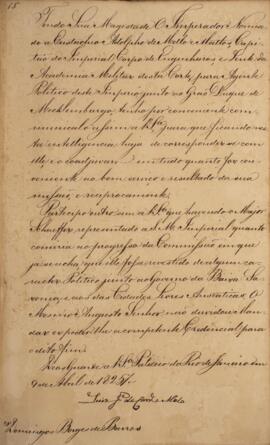 15
Tendo Sua Magestade O Imperador Nomea-
do a Eustachio Adolpho de Mello e Mattos Capi-
tão do Imperial Corpo de Engenheiros e Lente da
Academia Militar desta Corte, para Agente
Politico deste Imperio junto ao Grão Duque de
Mecklemburgo, tenho por conveniente com-
municalo assim a V.S.ª para que ficando nes-
ta intelligencia haja de corresponder-se com
elle, e o coadjuvar em tudo quanto for con-
veniente ao bom arranjo e resultado da sua
missão, e reciprocamente.
Participo outrosim a V.S.ª que havendo o Major
Schaeffer representado a S. M. Imperial quanto
convinha ao progresso da Commissão em que
já se acha, que elle fosse revestido de algum ca-
racter Politico junto ao Governo de Baixa Sa-
xonia, e aos das Cidades Livres Anseaticas, O
Mesmo Augusto Senhor não duvidou Man-
dar expedir-lhe a competente Credencial para
o dito fim.
Deos Guarde a V.S.ª Palacio do Rio de Janeiro em
9 de Abril de 1825.
Luiz J.e de Carv.o e Mello
Domingos Borges de Barros